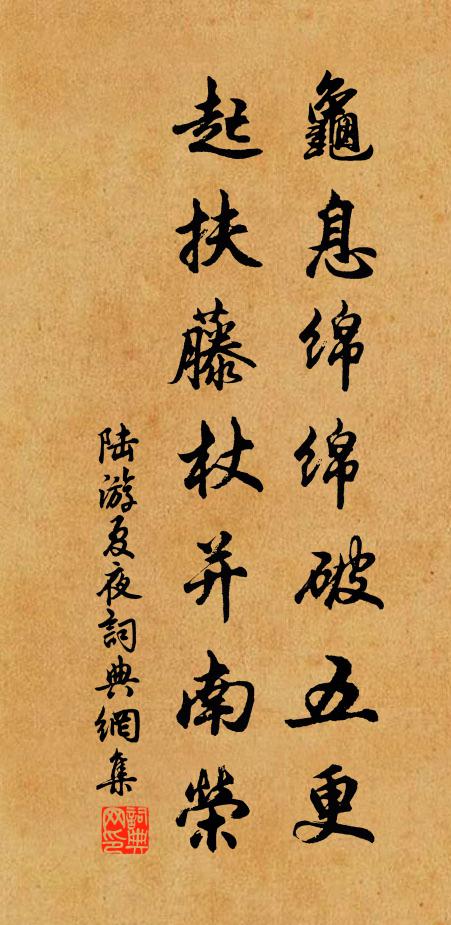 龜息绵绵破五更
起扶藤杖并南榮
陆游夏夜詞典網集
詞典网印